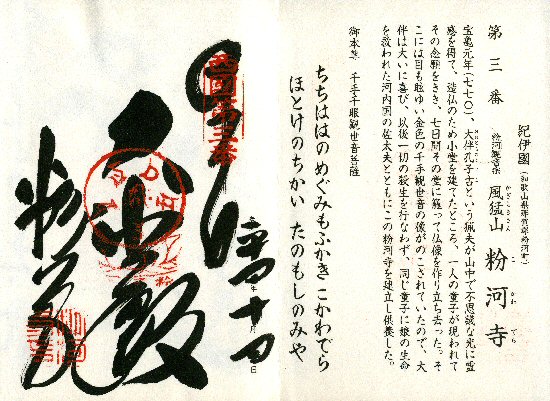 第三番
紀伊國(和歌山県那賀郡粉河町)
粉河観音宗 風猛山 粉河寺
かざらぎさん こ かわ でら
宝亀元年(七七〇)、大伴孔子古という猟夫が山中で不思議な光に霊
感を得て、造仏のため小堂を建てたところ、一人の童子が現われて
その念願をきき、七日間その堂に籠って仏像を作り立ち去った。そ
こには目も眩ゆい金色の千手観世音の像がのこされていたので、大
伴は大いに喜び、以後一切の殺生を行なわず、同じ童子に娘の生命
を救われた河内国の佐太夫とともにこの粉河寺を建立し供養した。
御本尊 千手千眼観世音菩薩
ちちははのめぐみもふかきこかわでら
ほとけのちかい たのもしのみや
年 月 日
西國第三番
大悲殿
粉河寺